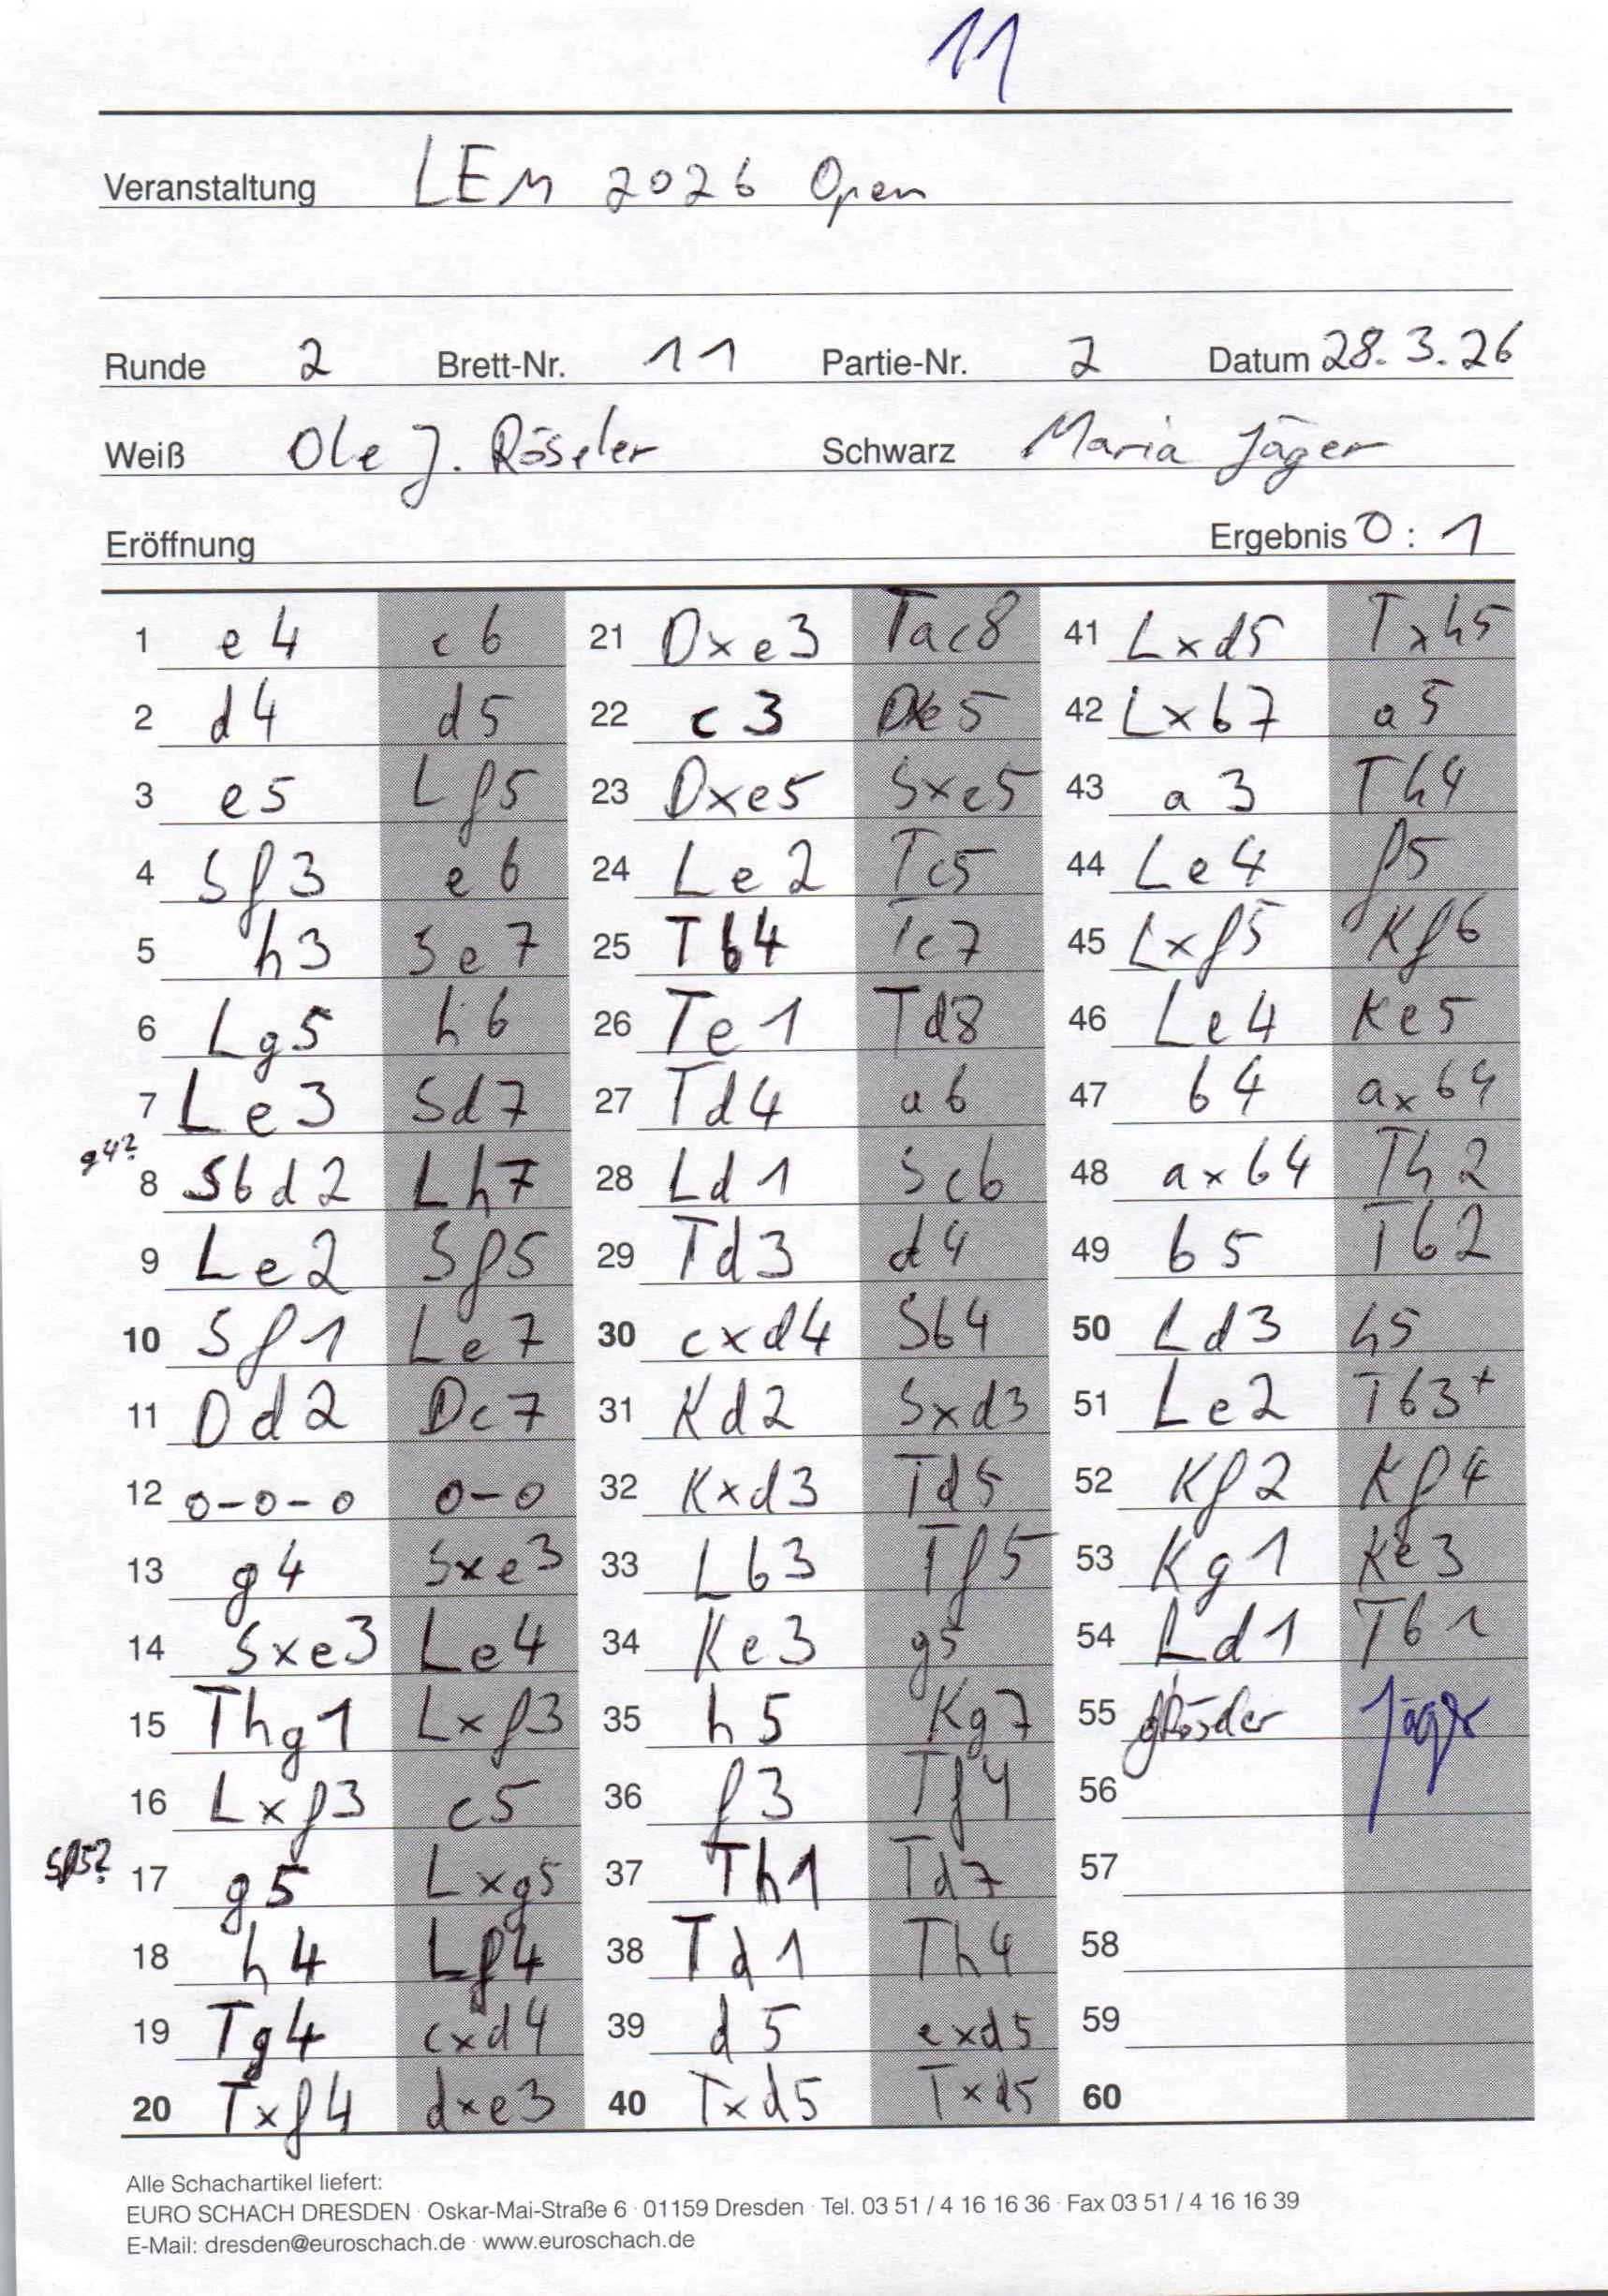 11
Veranstaltung LEM 2026 Open
Runde 2 Brett-Nr. 11 Partie-Nr. 2 Datum 28.3.26
Weiß Ole J. Röseler Schwarz Maria Jäger
Eröffnung Ergebnis 0 : 1
1 e4 c6
2 d4 d5
3 e5 Lf5
4 Sf3 e6
5 h3 Se7
6 Lg5 h6
7 Le3 Sd7
g4?
8 Sbd2 Lh7
9 Le2 Sf5
10 Sf1 Le7
11 Dd2 Dc7
12 0-0-0 0-0
13 g4 Sxe3
14 Sxe3 Le4
15 Thg1 Lxf3
16 Lxf3 c5
Sf5?
17 g5 Lxg5
18 h4 Lf4
19 Tg4 cxd4
20 Txf4 dxe3
21 Dxe3 Tac8
22 c3 Dxe5
23 Dxe5 Sxe5
24 Le2 Tc5
25 Tb4 Tc7
26 Te1 Td8
27 Td4 a6
28 Ld1 Sc6
29 Td3 d4
30 cxd4 Sb4
31 Kd2 Sxd3
32 Kxd3 Td5
33 Lb3 Tf5
34 Ke3 g5
35 h5 Kg7
36 f3 Tf4
37 Th1 Td7
38 Td1 Th4
39 d5 exd5
40 Txd5 Txd5
41 Lxd5 Txh5
42 Lxb7 a5
43 a3 Th4
44 Le4 f5
45 Lxf5 Kf6
46 Le4 Ke5
47 b4 axb4
48 axb4 Th2
49 b5 Tb2
50 Ld3 h5
51 Le2 Tb3+
52 Kf2 Kf4
53 Kg1 Ke3
54 Ld1 Tb1
55 Röseler Jäger
56
57
58
59
60
Alle Schachartikel liefert:
EURO SCHACH DRESDEN · Oskar-Mai-Straße 6 · 01159 Dresden · Tel. 03 51 / 4 16 16 36 · Fax 03 51 / 4 16 16 39
E-Mail: dresden@euroschach.de · www.euroschach.de